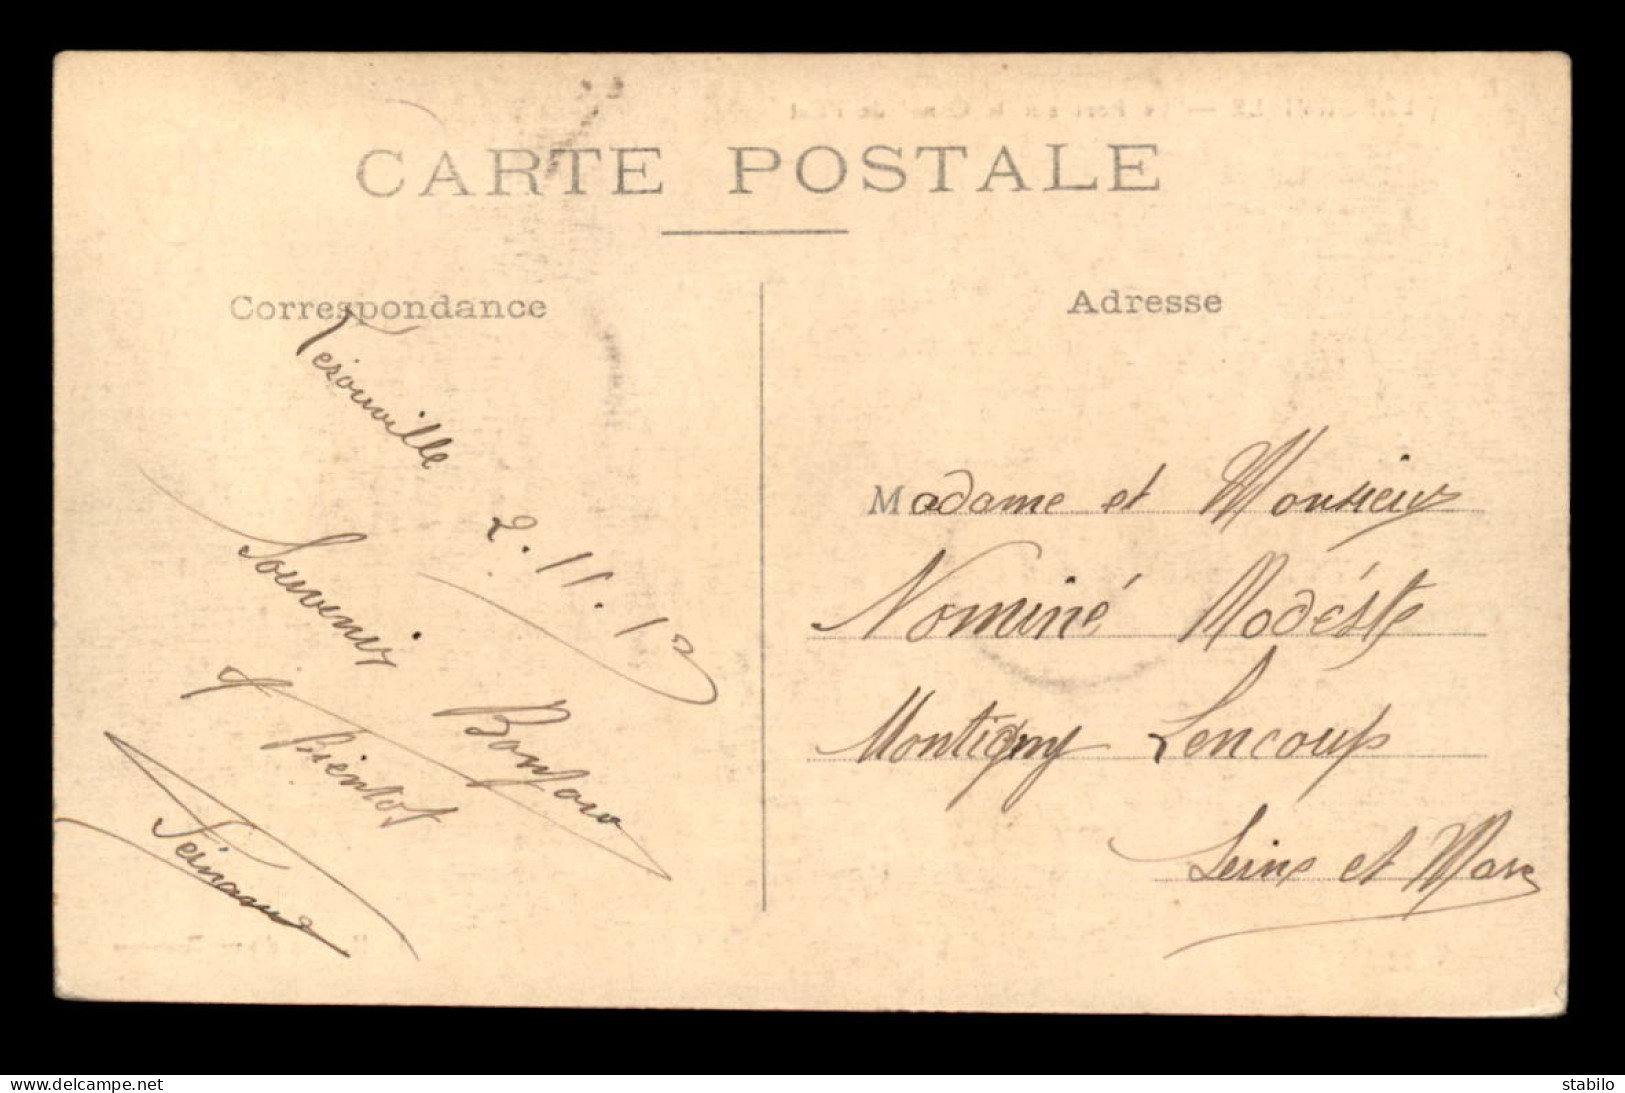 CARTE POSTALE
Correspondance
Adresse
Lerouville
2.11.12
Souvenir
Bonjour
A Bientot
Madame et Monsieur
Nominé Modéste
Montigny Lencoup
Seine et Marne
delcampe.net
stabilo